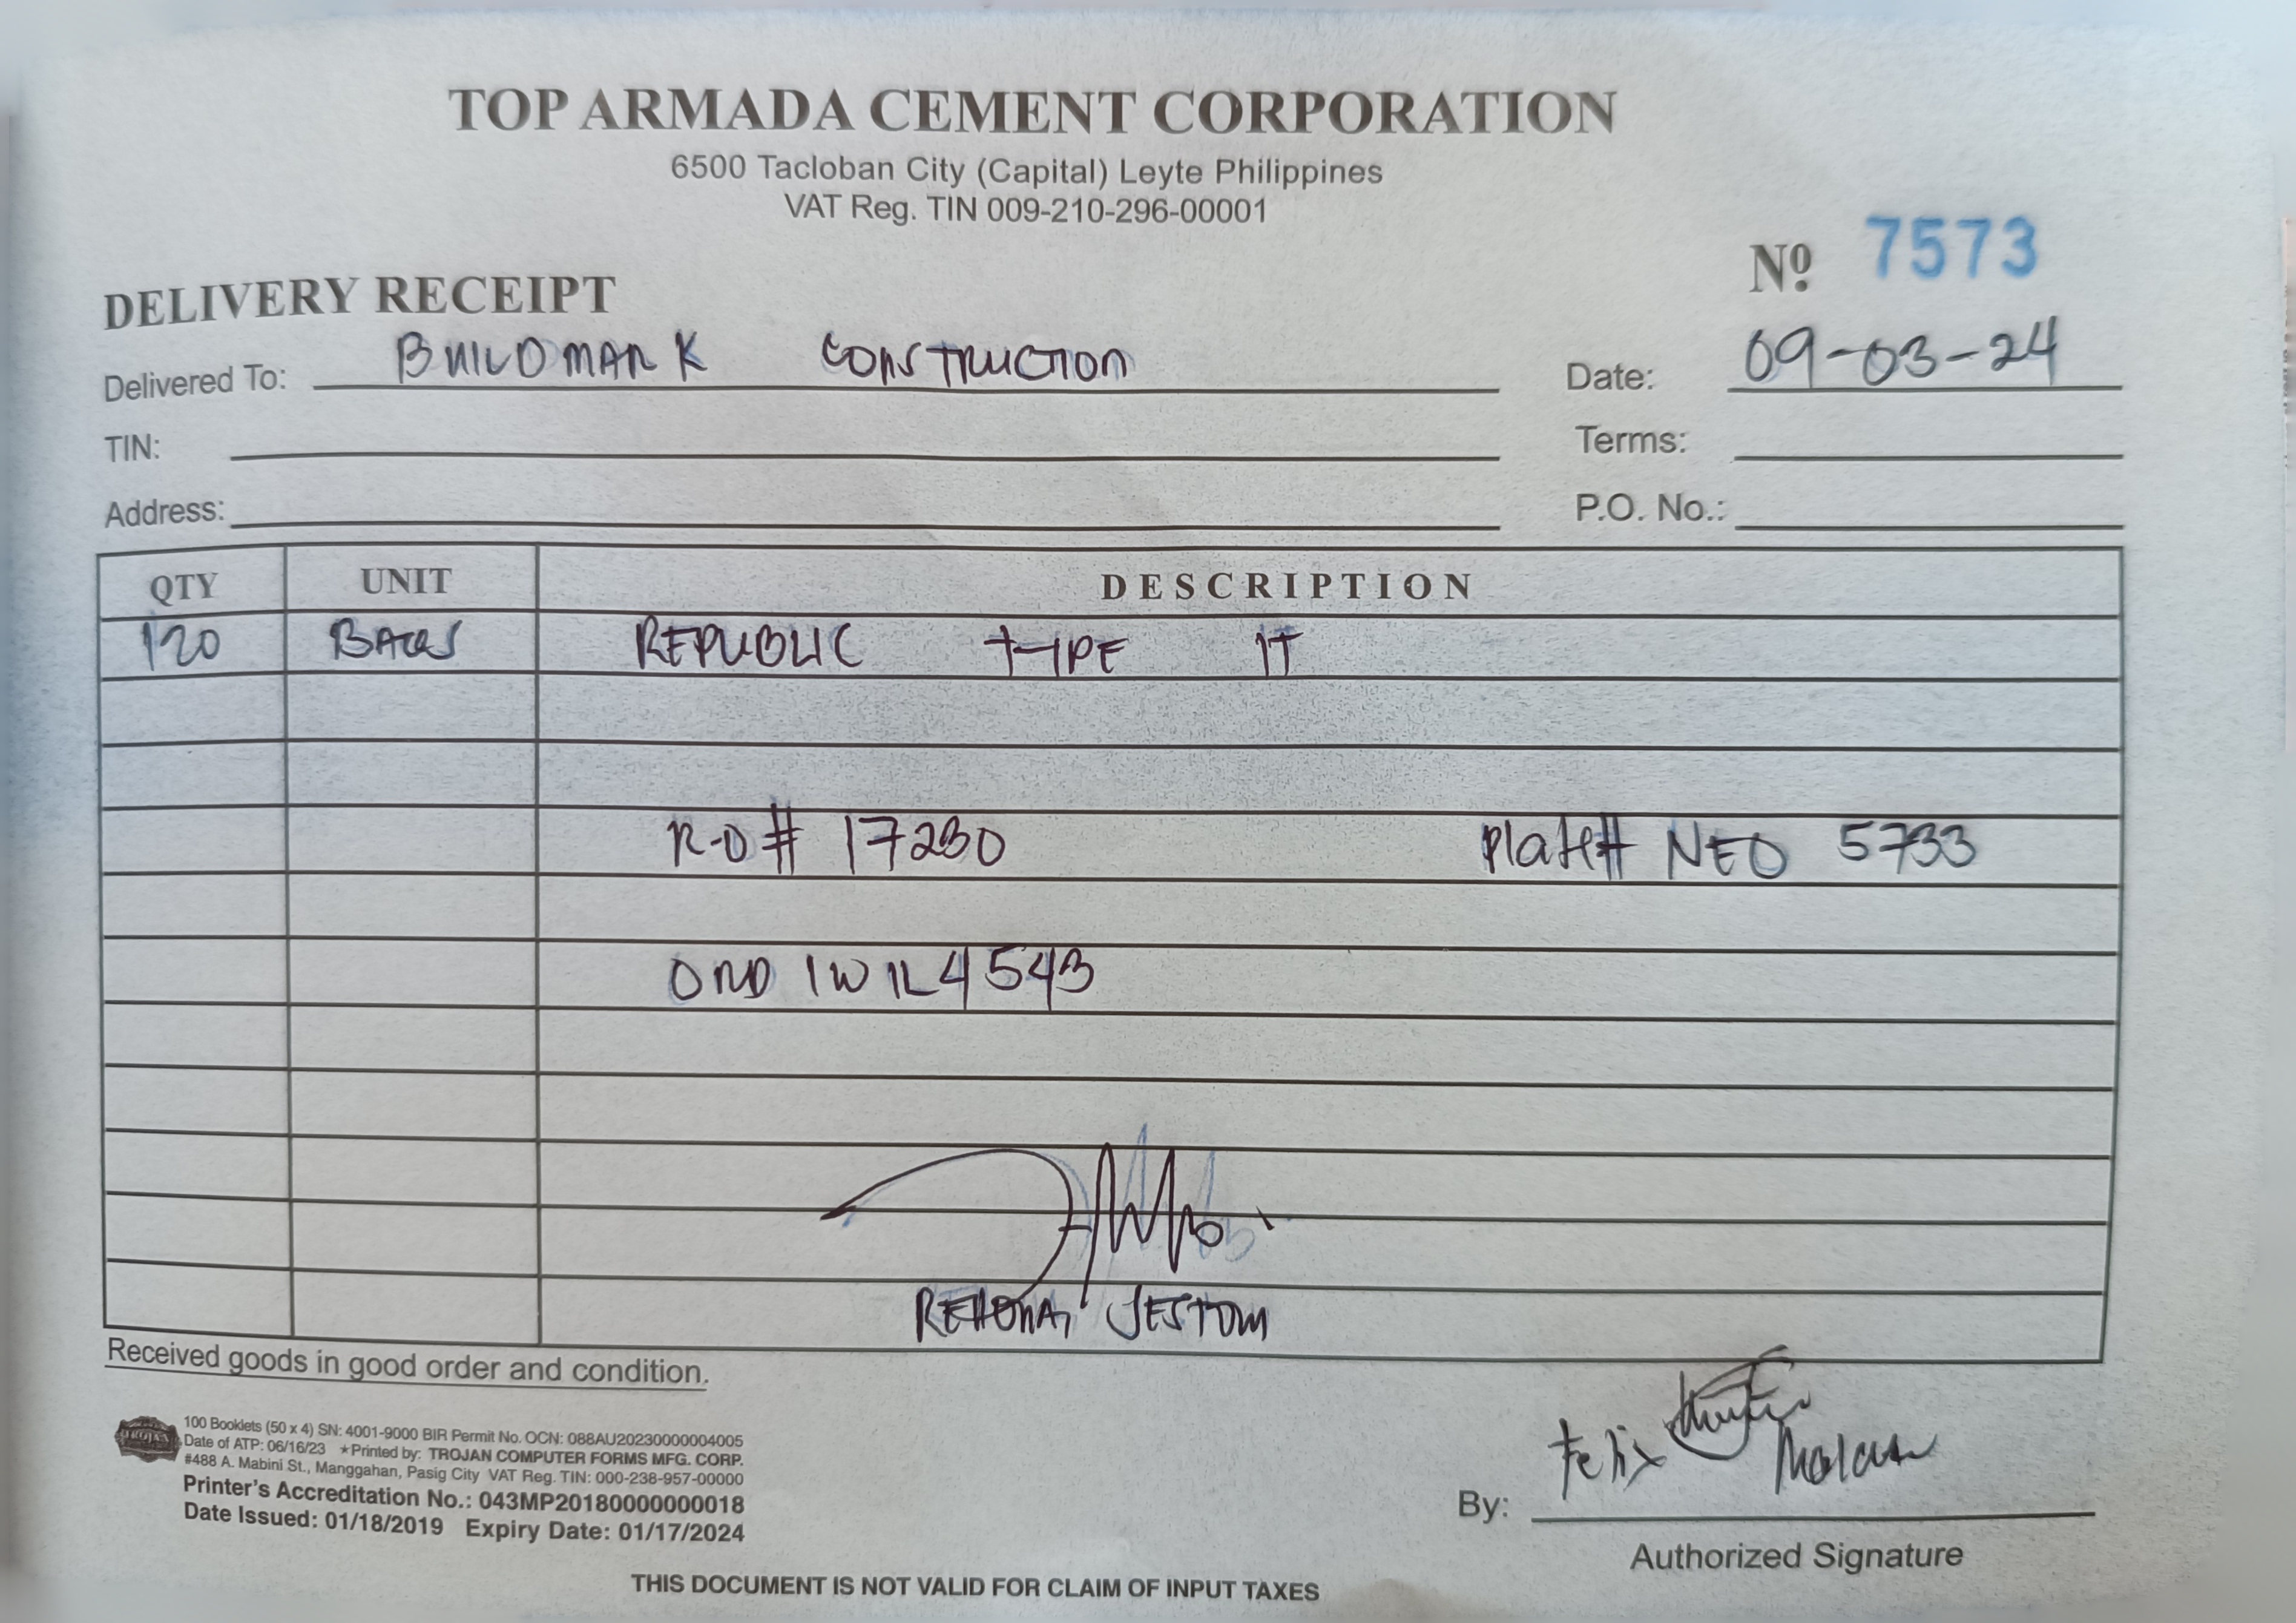 TOP ARMADA CEMENT CORPORATION
6500 Tacloban City (Capital) Leyte Philippines
VAT Reg. TIN 009-210-296-00001
Nº 7573
DELIVERY RECEIPT
Delivered To: BUILDMARK CONSTRUCTION
Date: 09-03-24
TIN:
Terms:
Address:
P.O. No.:
QTY UNIT DESCRIPTION
120 BAGS REPUBLIC TYPE 1T
R-O# 17230 Plate# NEO 5733
4543
JESTOM
Received goods in good order and condition.
TROJAN
100 Booklets (50 x 4) SN: 4001-9000 BIR Permit No. OCN: 088AU20230000004005
Date of ATP: 06/16/23 ★Printed by: TROJAN COMPUTER FORMS MFG. CORP.
#488 A. Mabini St., Manggahan, Pasig City VAT Reg. TIN: 000-238-957-00000
Printer's Accreditation No.: 043MP20180000000018
Date Issued: 01/18/2019 Expiry Date: 01/17/2024
Felix
By:
Authorized Signature
THIS DOCUMENT IS NOT VALID FOR CLAIM OF INPUT TAXES